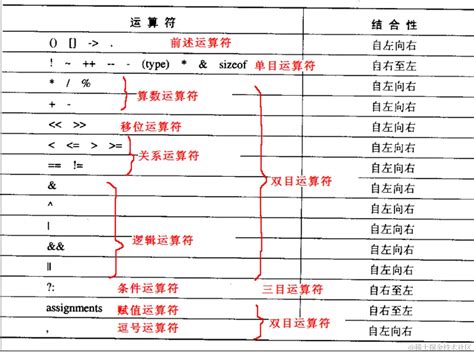 运算符 结合性
() [] -> . 前述运算符 自左向右
! ~ ++ -- - (type) * & sizeof 单目运算符 自右至左
* / % 自左向右
算数运算符
+ - 自左向右
<< >> 移位运算符 自左向右
< <= > >= 自左向右
关系运算符
== != 自左向右
双目运算符
& 自左向右
^ 自左向右
| 自左向右
逻辑运算符
&& 自左向右
|| 自左向右
?: 条件运算符 三目运算符 自右至左
assignments 赋值运算符 自右至左
双目运算符
, 逗号运算符 自左向右
@稀土掘金技术社区